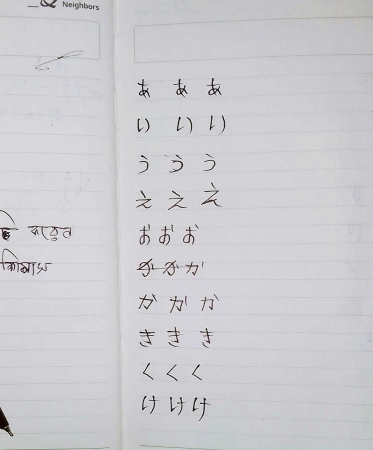 & Neighbors
あ あ あ
い い い
う う う
え え え
お お お
か か か
か か か
き き き
く く く
け け け